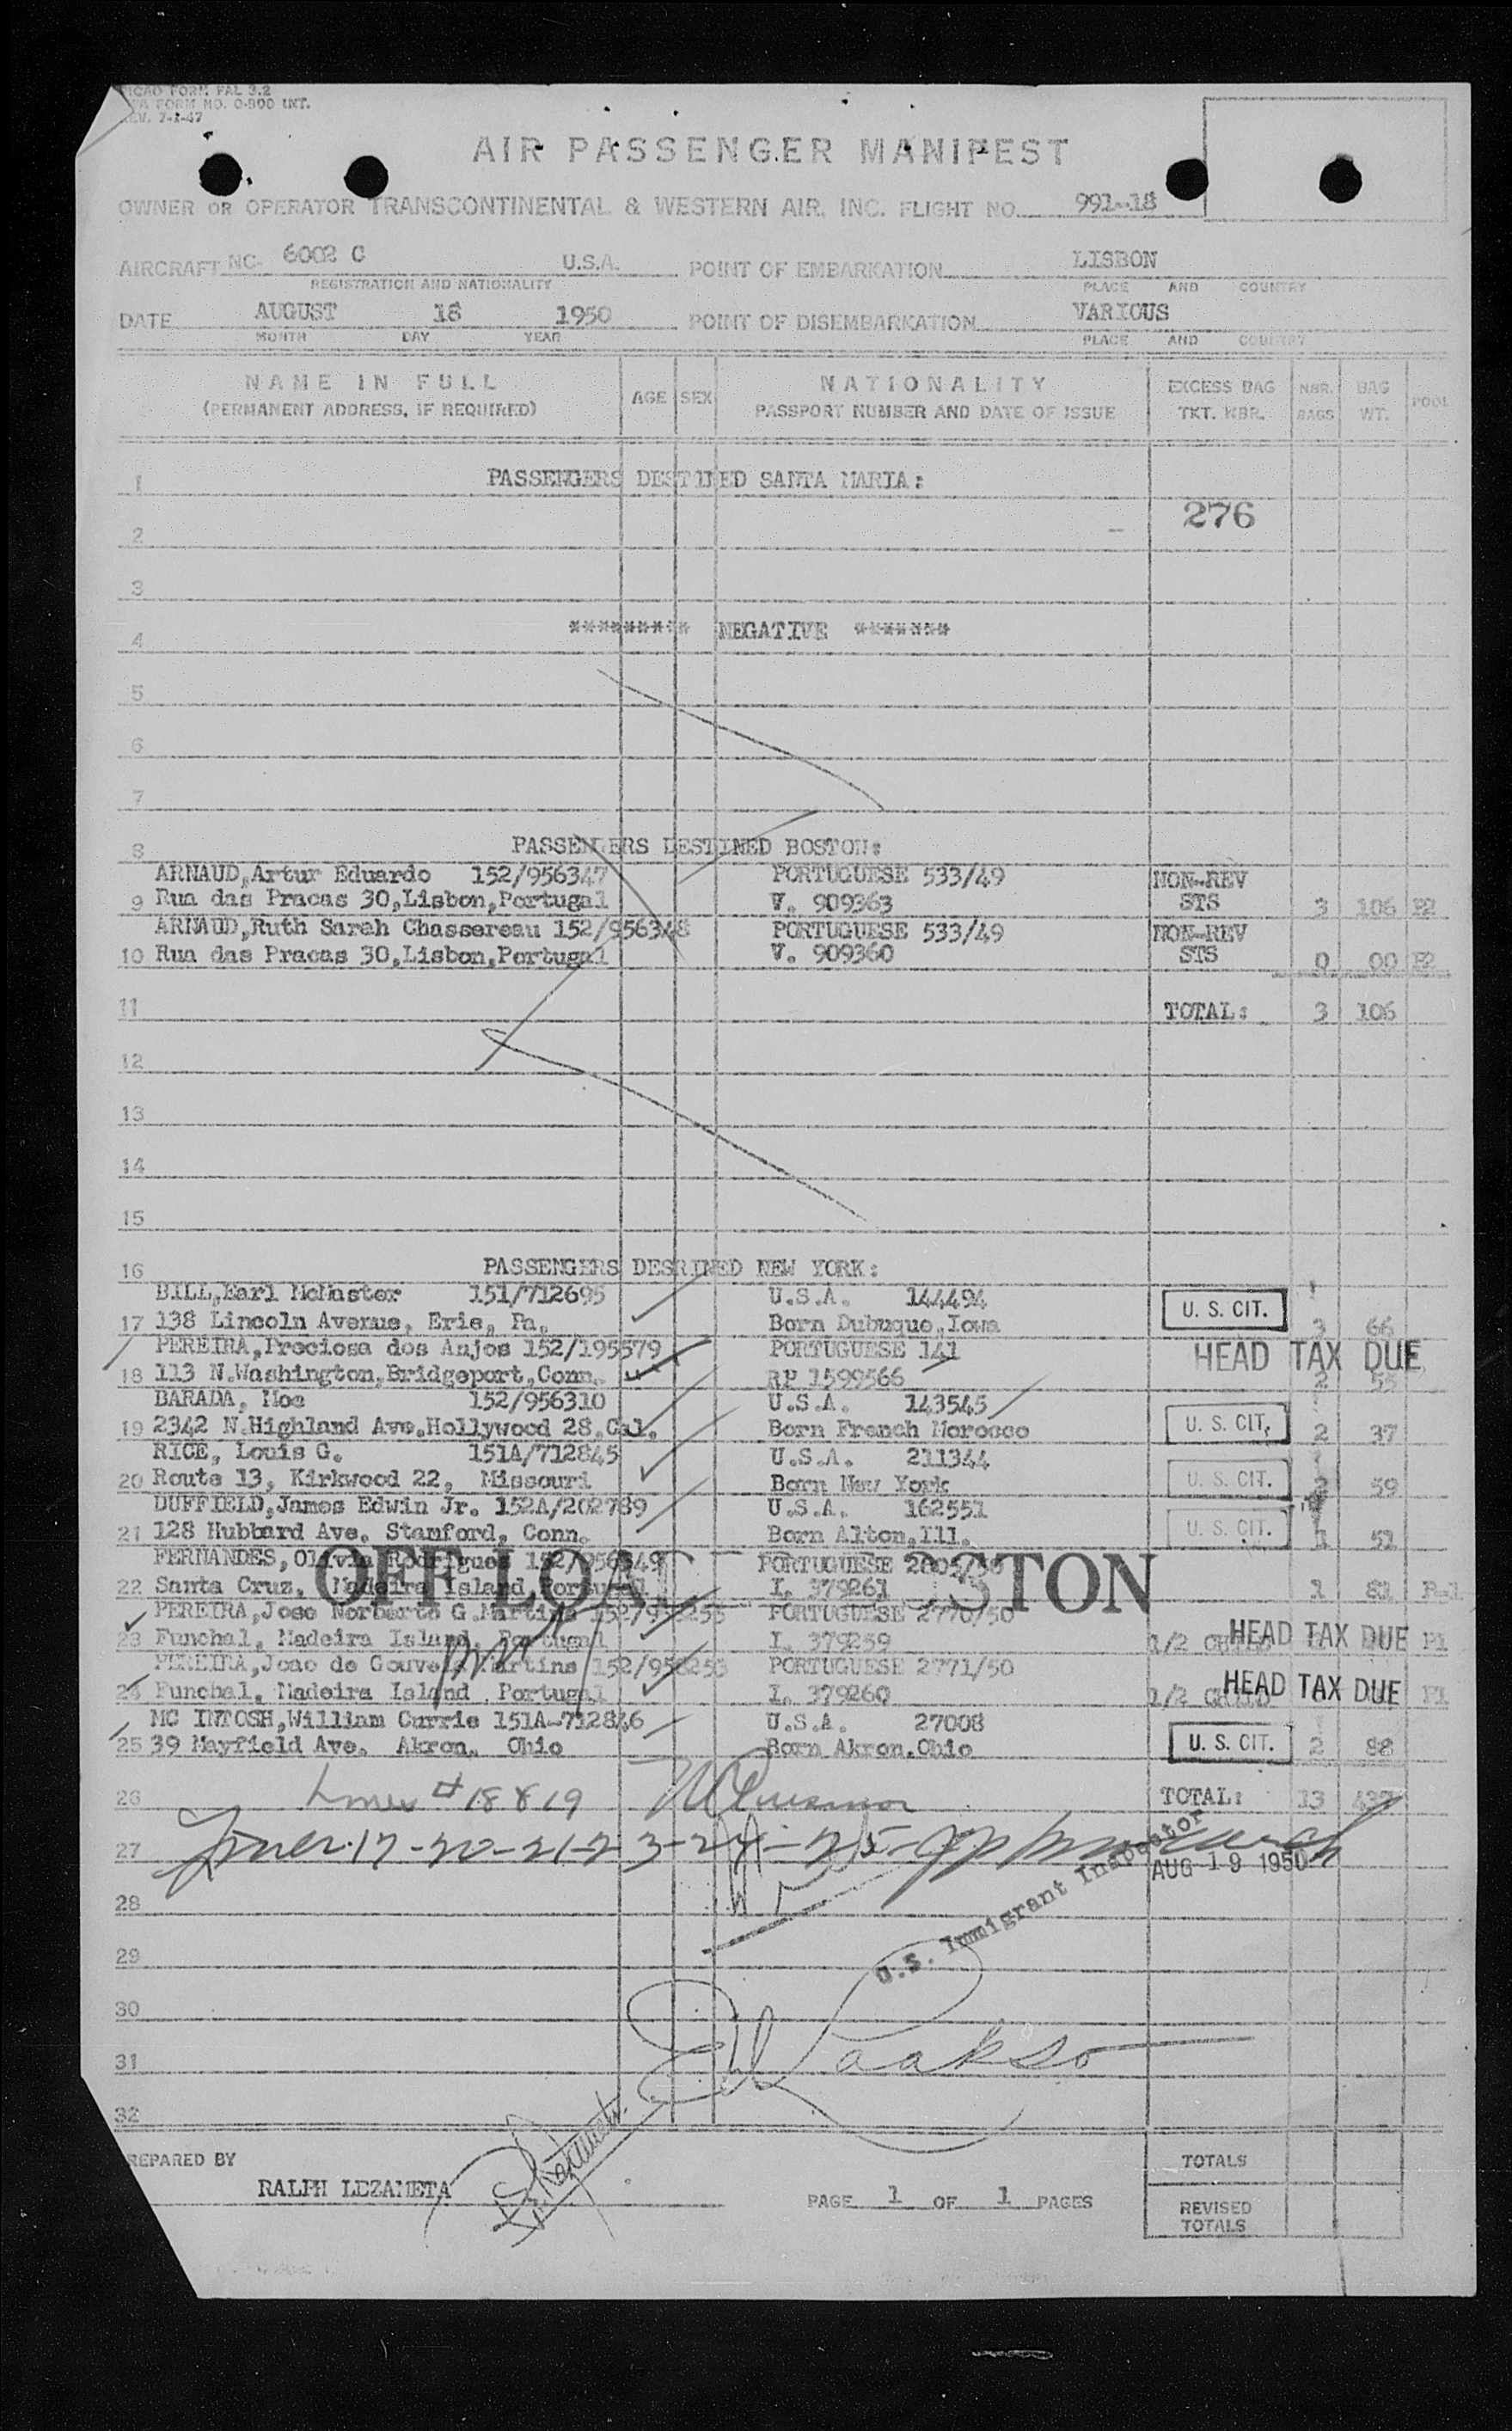 ICAO FORM FAL 3.2
FORM NO. O-800 INT.
REV. 7-1-47
AIR PASSENGER MANIFEST
OWNER OR OPERATOR TRANSCONTINENTAL & WESTERN AIR, INC. FLIGHT NO. 991-18
AIRCRAFT NC- 6002 C U.S.A. POINT OF EMBARKATION LISBON
REGISTRATION AND NATIONALITY PLACE AND COUNTRY
DATE AUGUST 18 1950 POINT OF DISEMBARKATION VARIOUS
MONTH DAY YEAR PLACE AND COUNTRY
NAME IN FULL AGE SEX NATIONALITY EXCESS BAG NBR. BAG POOL
(PERMANENT ADDRESS, IF REQUIRED) PASSPORT NUMBER AND DATE OF ISSUE TKT. NBR. BAGS WT.
1 PASSENGERS DESTINED SANTA MARIA:
276
2
3
4 ********* NEGATIVE *******
5
6
7
8 PASSENGERS DESTINED BOSTON:
ARNAUD,Artur Eduardo 152/956347 PORTUGUESE 533/49 NON-REV
9 Rua das Pracas 30,Lisbon,Portugal V. 909363 STS 3 106 P2
ARNAUD,Ruth Sarah Chassereau 152/956348 PORTUGUESE 533/49 NON-REV
10 Rua das Pracas 30,Lisbon,Portugal V. 909360 STS 0 00 P2
11 TOTAL: 3 106
12
13
14
15
16 PASSENGERS DESRINED NEW YORK:
BILL,Earl McMaster 151/712695 U.S.A. 144494 U. S. CIT.
17 138 Lincoln Avenue, Erie, Pa. Born Dubuque,Iowa 3 66
PEREIRA,Preciosa dos Anjos 152/195579 PORTUGUESE 141 HEAD TAX DUE
18 113 N.Washington,Bridgeport,Conn. RP 1599566 2 55
BARADA, Moe 152/956310 U.S.A. 143545 U. S. CIT.
19 2342 N.Highland Ave.Hollywood 28.Cal. Born French Morocco 2 37
RICE, Louis G. 151A/712845 U.S.A. 211344 U. S. CIT.
20 Route 13, Kirkwood 22, Missouri Born New York 2 59
DUFFIELD,James Edwin Jr. 152A/202789 U.S.A. 162551 U. S. CIT.
21 128 Hubbard Ave. Stamford, Conn. Born Alton,Ill. 1 51
FERNANDES,Olivia Rodrigues 152/956349 PORTUGUESE
OFF LOAD BOSTON
22 Santa Cruz, Madeira Island Portugal I. 379261 1 81 P-1
PEREIRA,Jose Norberto G.Martins PORTUGUESE 2770/50
23 Funchal, Madeira Island, Portugal I. 379259 1/2 HEAD TAX DUE P1
PEREIRA,Joao de Gouveia Martins 152/956253 PORTUGUESE 2771/50
24 Funchal, Madeira Island, Portugal I. 379260 1/2 HEAD TAX DUE P1
MC INTOSH,William Currie 151A-712846 U.S.A. 27008 U. S. CIT.
25 39 Mayfield Ave. Akron, Ohio Born Akron,Ohio 2 88
26 Lines # 18 & 19 TOTAL: 13 437
27 Lines 17-20-21-23-24-25
U.S. Immigrant Inspector
AUG 19 1950
28
29
30
31
32
PREPARED BY
RALPH LEZAMETA
PAGE 1 OF 1 PAGES
TOTALS
REVISED
TOTALS